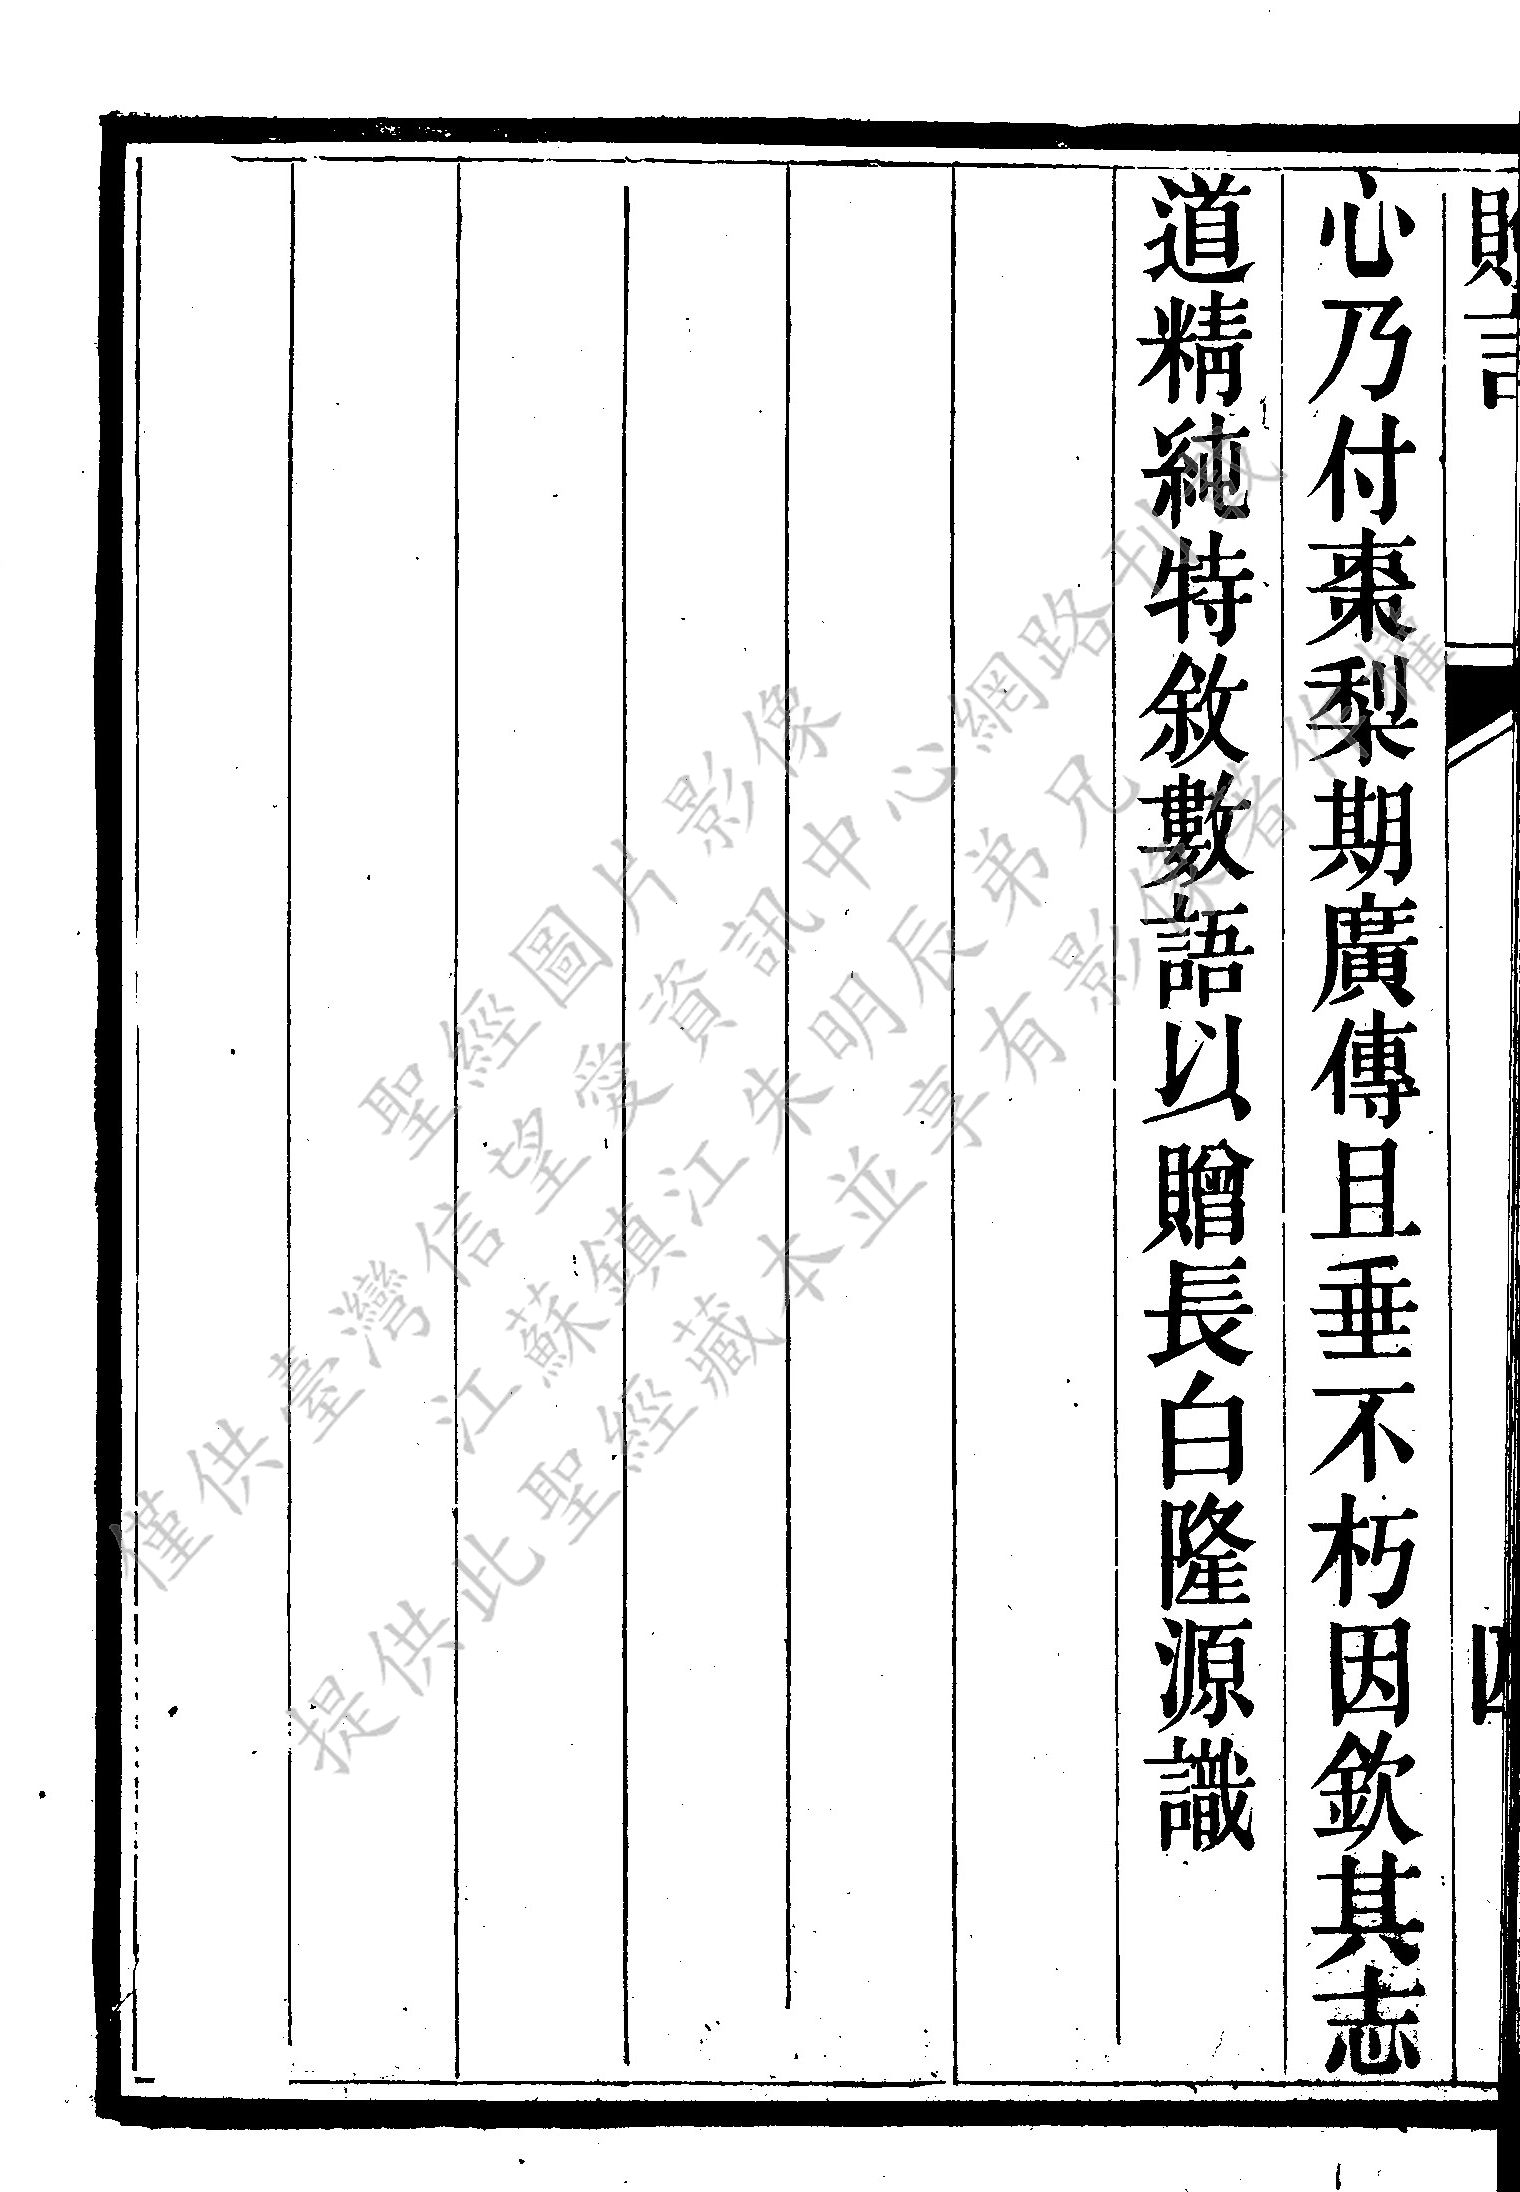 贈言
四
心乃付棗梨期廣傳且垂不朽因欽其志
道精純特敘數語以贈長白隆源識
聖經圖片影像
僅供臺灣信望愛資訊中心網路刊載
江蘇鎮江朱明辰弟兄
提供此聖經藏本並享有影像著作權